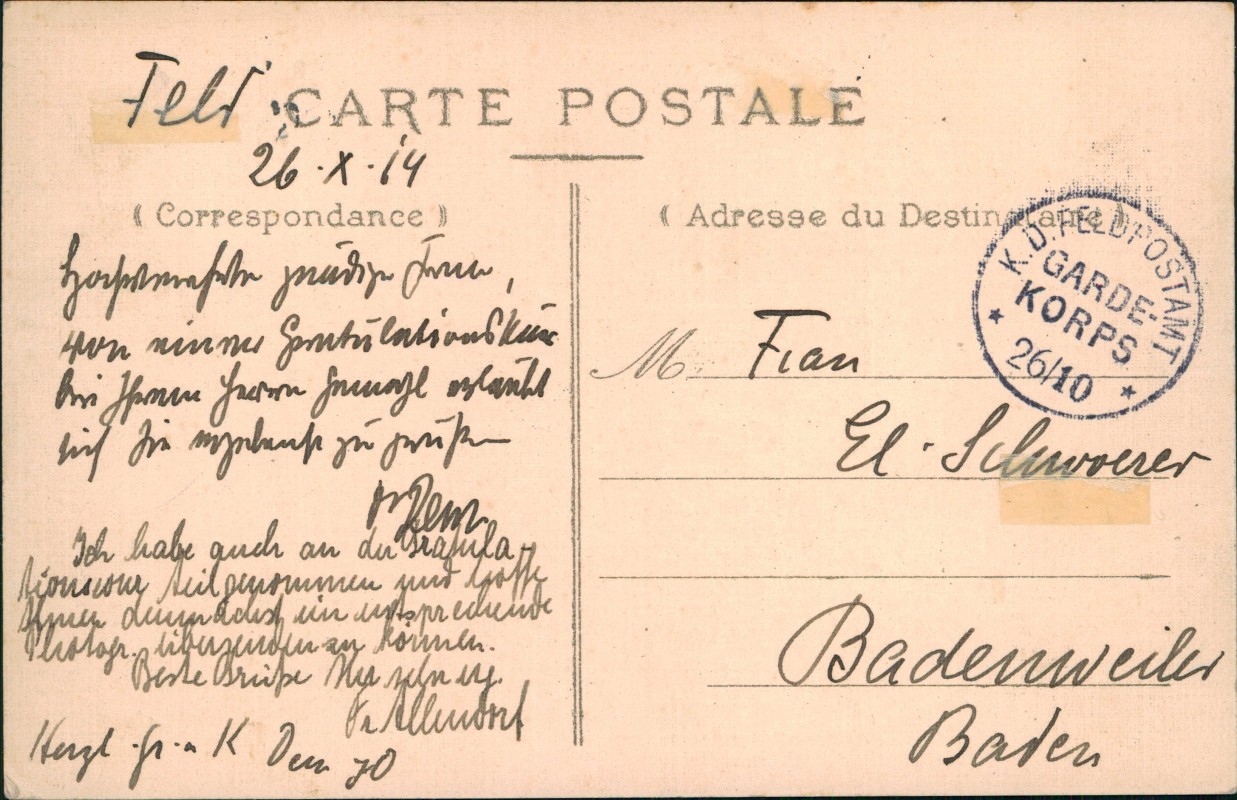 Feld
CARTE POSTALE
26.X.14
( Correspondance )
( Adresse du Destinataire )
K.D. FELDPOSTAMT
GARDE-
KORPS
26/10
Hochverehrte gnädige Frau,
von einer Gratulationskur
bei Ihrem Herrn Gemahl erlaubt
sich Sie ergebenst zu grüßen
Dr
Ich habe auch an der Gratula-
tionscour teilgenommen und hoffe
Ihnen demnächst ein entsprechende
Photogr. übersenden zu können.
Beste Grüße Ihr sehr erg.
Dr Allendorf
Herzl. Gr. u. K
M. Frau
El. Schwoerer
Badenweiler
Baden